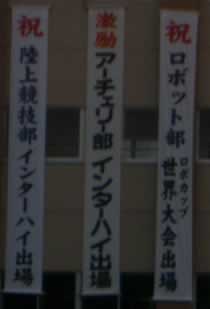 祝 陸上競技部 インターハイ出場
激励 アーチェリー部 インターハイ出場
祝 ロボット部 ロボカップ 世界大会出場